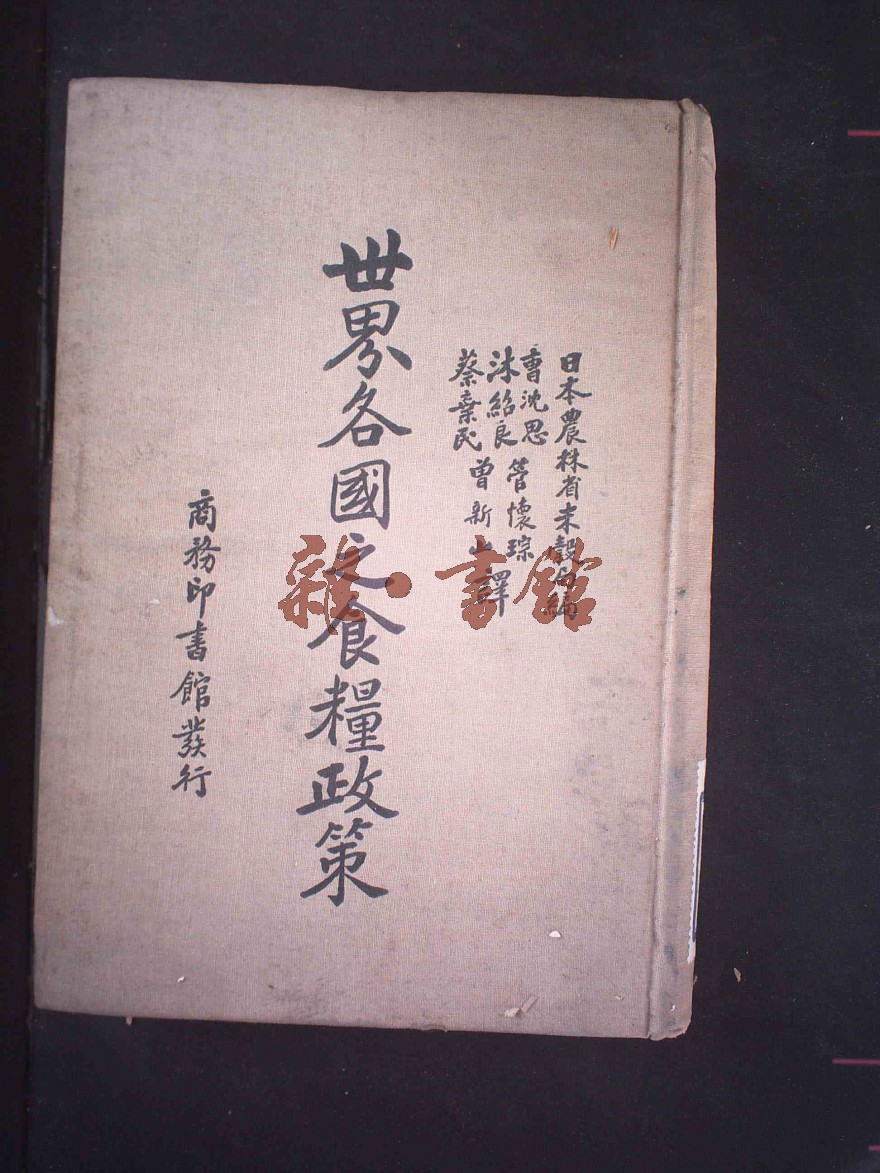 日本農林省米穀局編
曹沈思 管懷琮
沐紹良
蔡棄民 曾新山
譯
世界各國之食糧政策
商務印書館發行
雜·書館